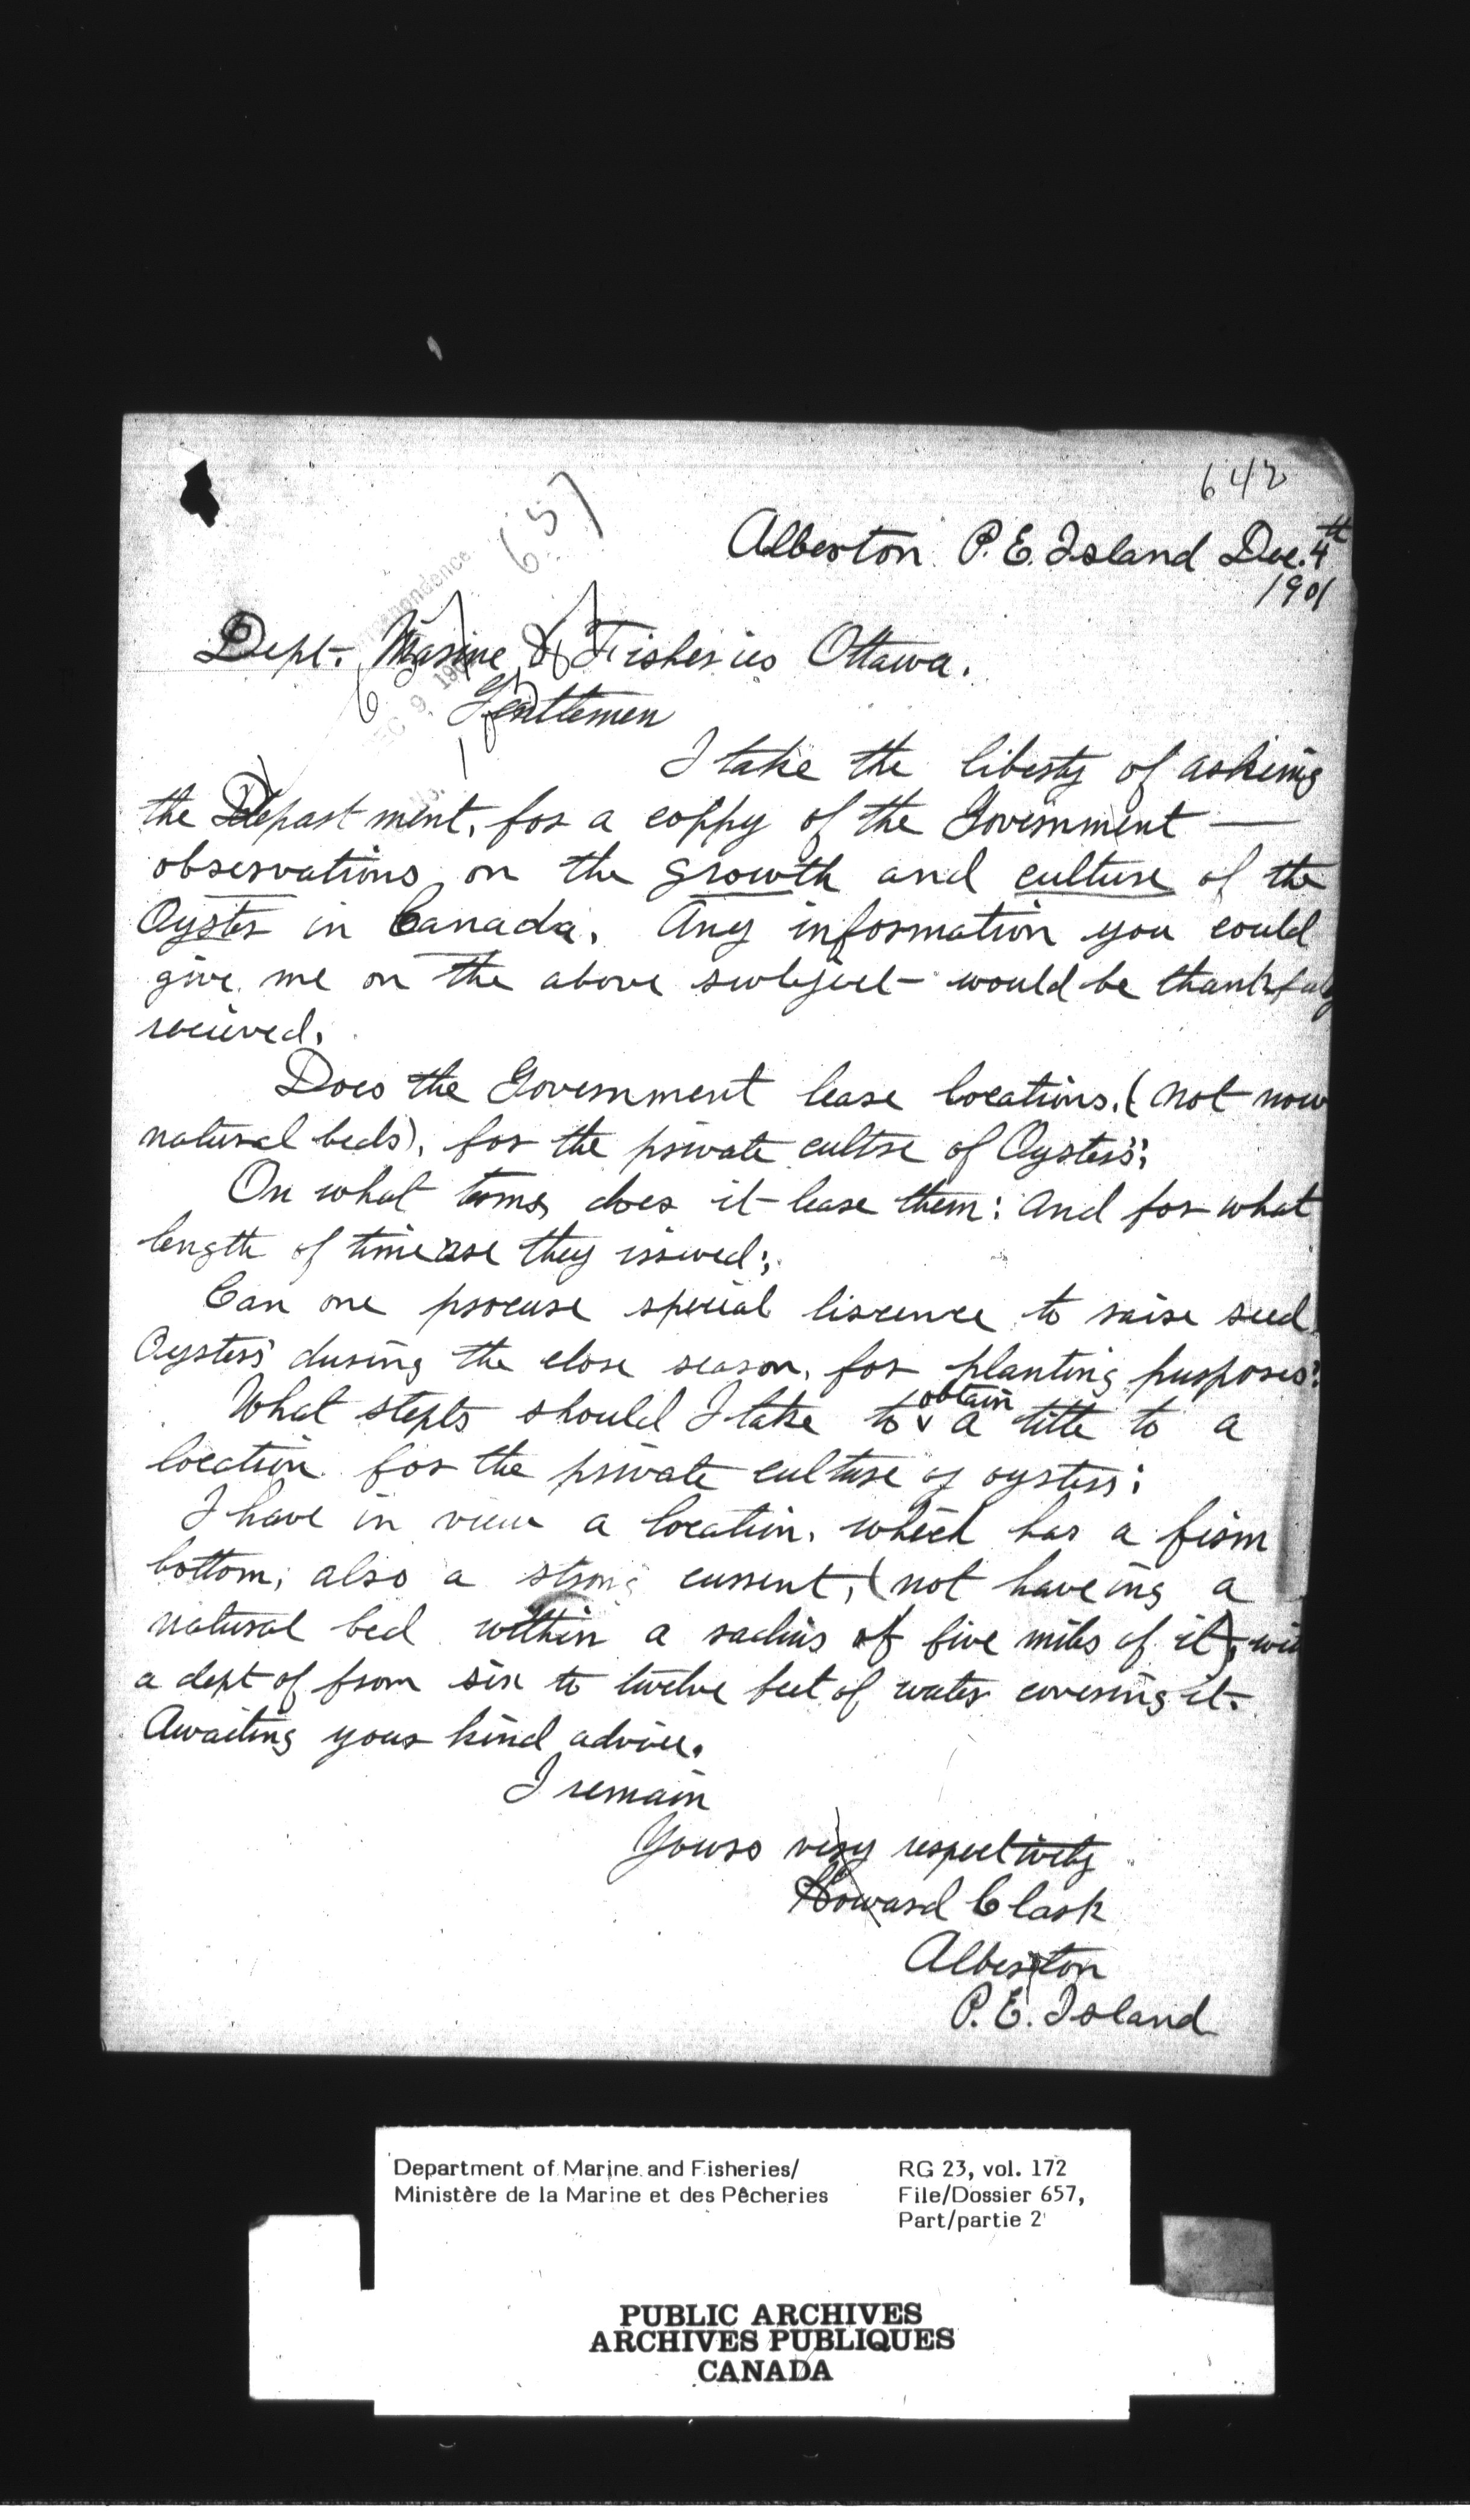 642
657
Alberton P. E. Island Dec. 4th
1901
Dept. Marine & Fisheries Ottawa.
Gentlemen
I take the liberty of asking
the Department, for a coppy of the Government —
observations on the growth and culture of the
Oyster in Canada. Any information you could
give me on the above subject would be thankfuly
recieved.
Does the Government lease locations, (not now
natural beds), for the private cultre of Oysters;
On what terms does it lease them: and for what
length of time are they issued;
Can one procure special liscence to raise seed
Oysters during the close season, for planting purposes:
What stepts should I take to obtain a title to a
location for the private culture of oysters:
I have in view a location, which has a firm
bottom; also a strong current, (not haveing a
natural bed within a radius of five miles of it), wit
a dept of from six to twelve feet of water covering it.
Awaiting your kind advice.
I remain
Yours very respectively
Howard Clark
Alberton
P. E. Island
Department of Marine and Fisheries/
Ministère de la Marine et des Pêcheries
RG 23, vol. 172
File/Dossier 657,
Part/partie 2
PUBLIC ARCHIVES
ARCHIVES PUBLIQUES
CANADA